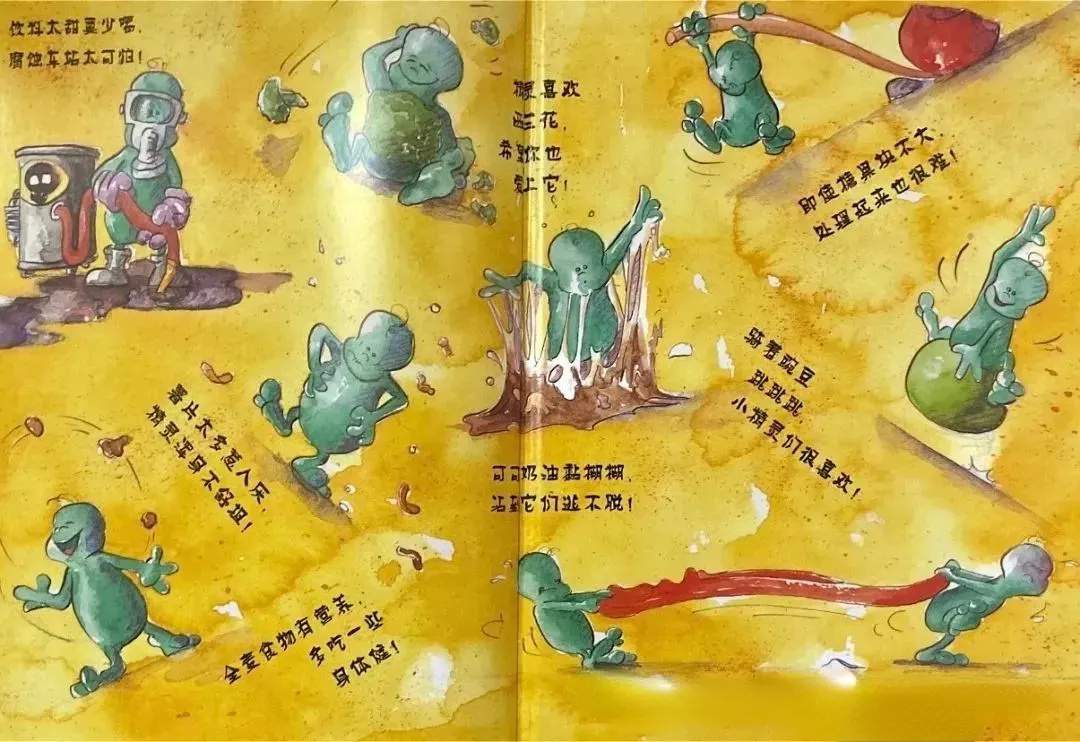 饮料太甜要少喝,
腐蚀车站太可怕!
喜欢
西兰花,
希望你也
爱上它!
即使糖果块不大,
处理起来也很难!
骑着豌豆
跳跳跳
小精灵们很喜欢!
薯片太多惹人厌,
精灵浑身不舒坦!
可可奶油黏糊糊,
沾到它们逃不脱!
全麦食物有营养,
多吃一些
身体健!